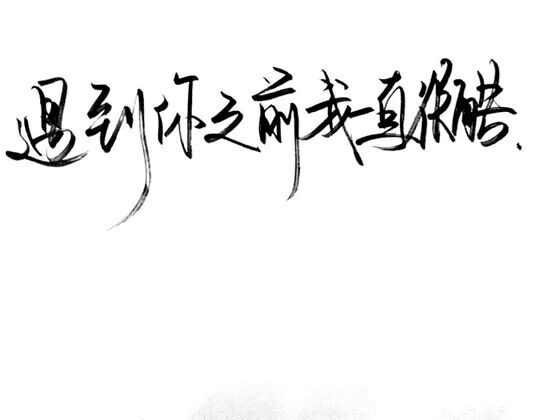 遇到你之前我一直很酷.